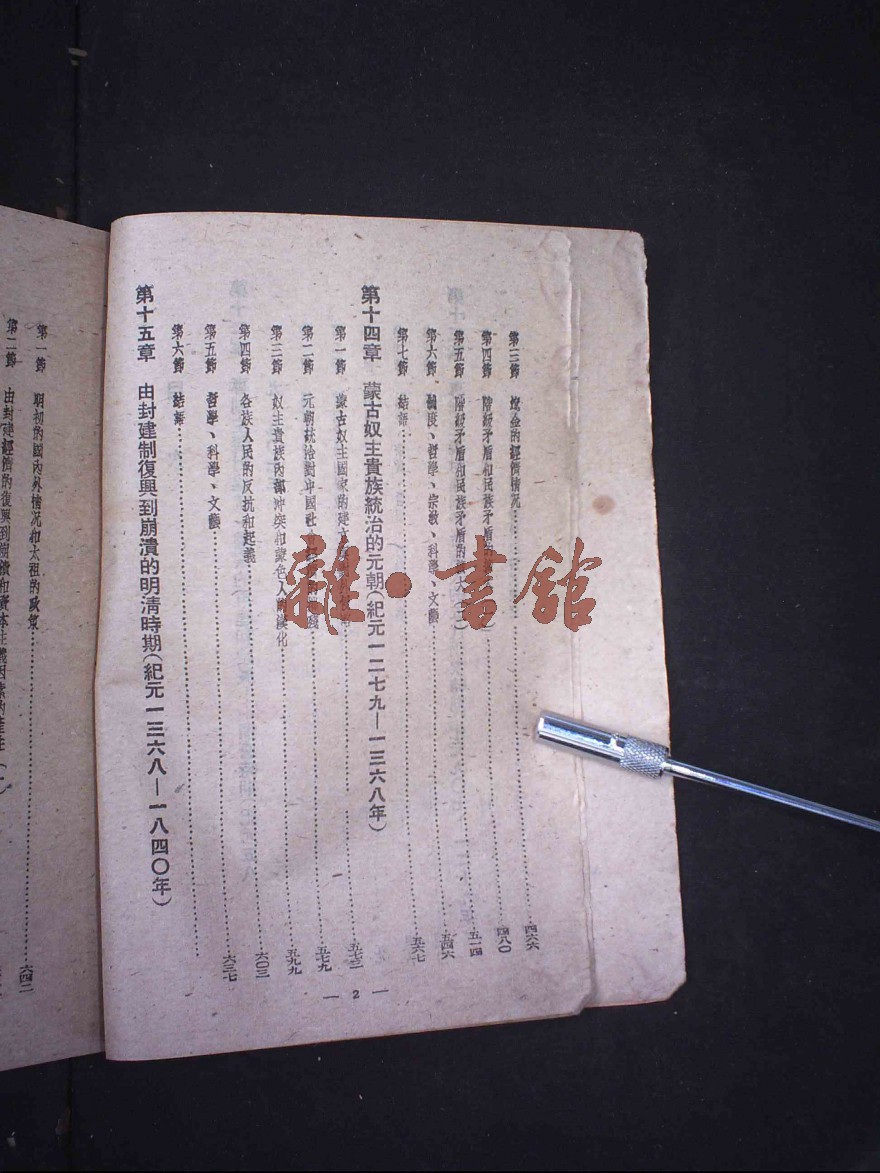 第三節 遼金的經濟情况 四六六
第四節 階級矛盾和民族矛盾 四八〇
第五節 階級矛盾和民族矛盾的 五一四
第六節 制度、哲學、宗教、科學、文藝 五四六
第七節 結語 五六七
第十四章 蒙古奴主貴族統治的元朝(紀元一二七九—一三六八年)
第一節 蒙古奴主國家的建立 五七三
第二節 元朝統治對中國社會 五七九
第三節 奴主貴族內部冲突和蒙色人 漢化 五九九
第四節 各族人民的反抗和起義 六〇三
第五節 哲學、科學、文藝 六三七
第六節 結語
第十五章 由封建制復興到崩潰的明清時期(紀元一三六八—一八四〇年)
— 2 —
第一節 期初的國內外情况和太祖的政策 六四二
第二節 由封建經濟的復興到崩潰和資本主義因素的產生(一)
雜·書館